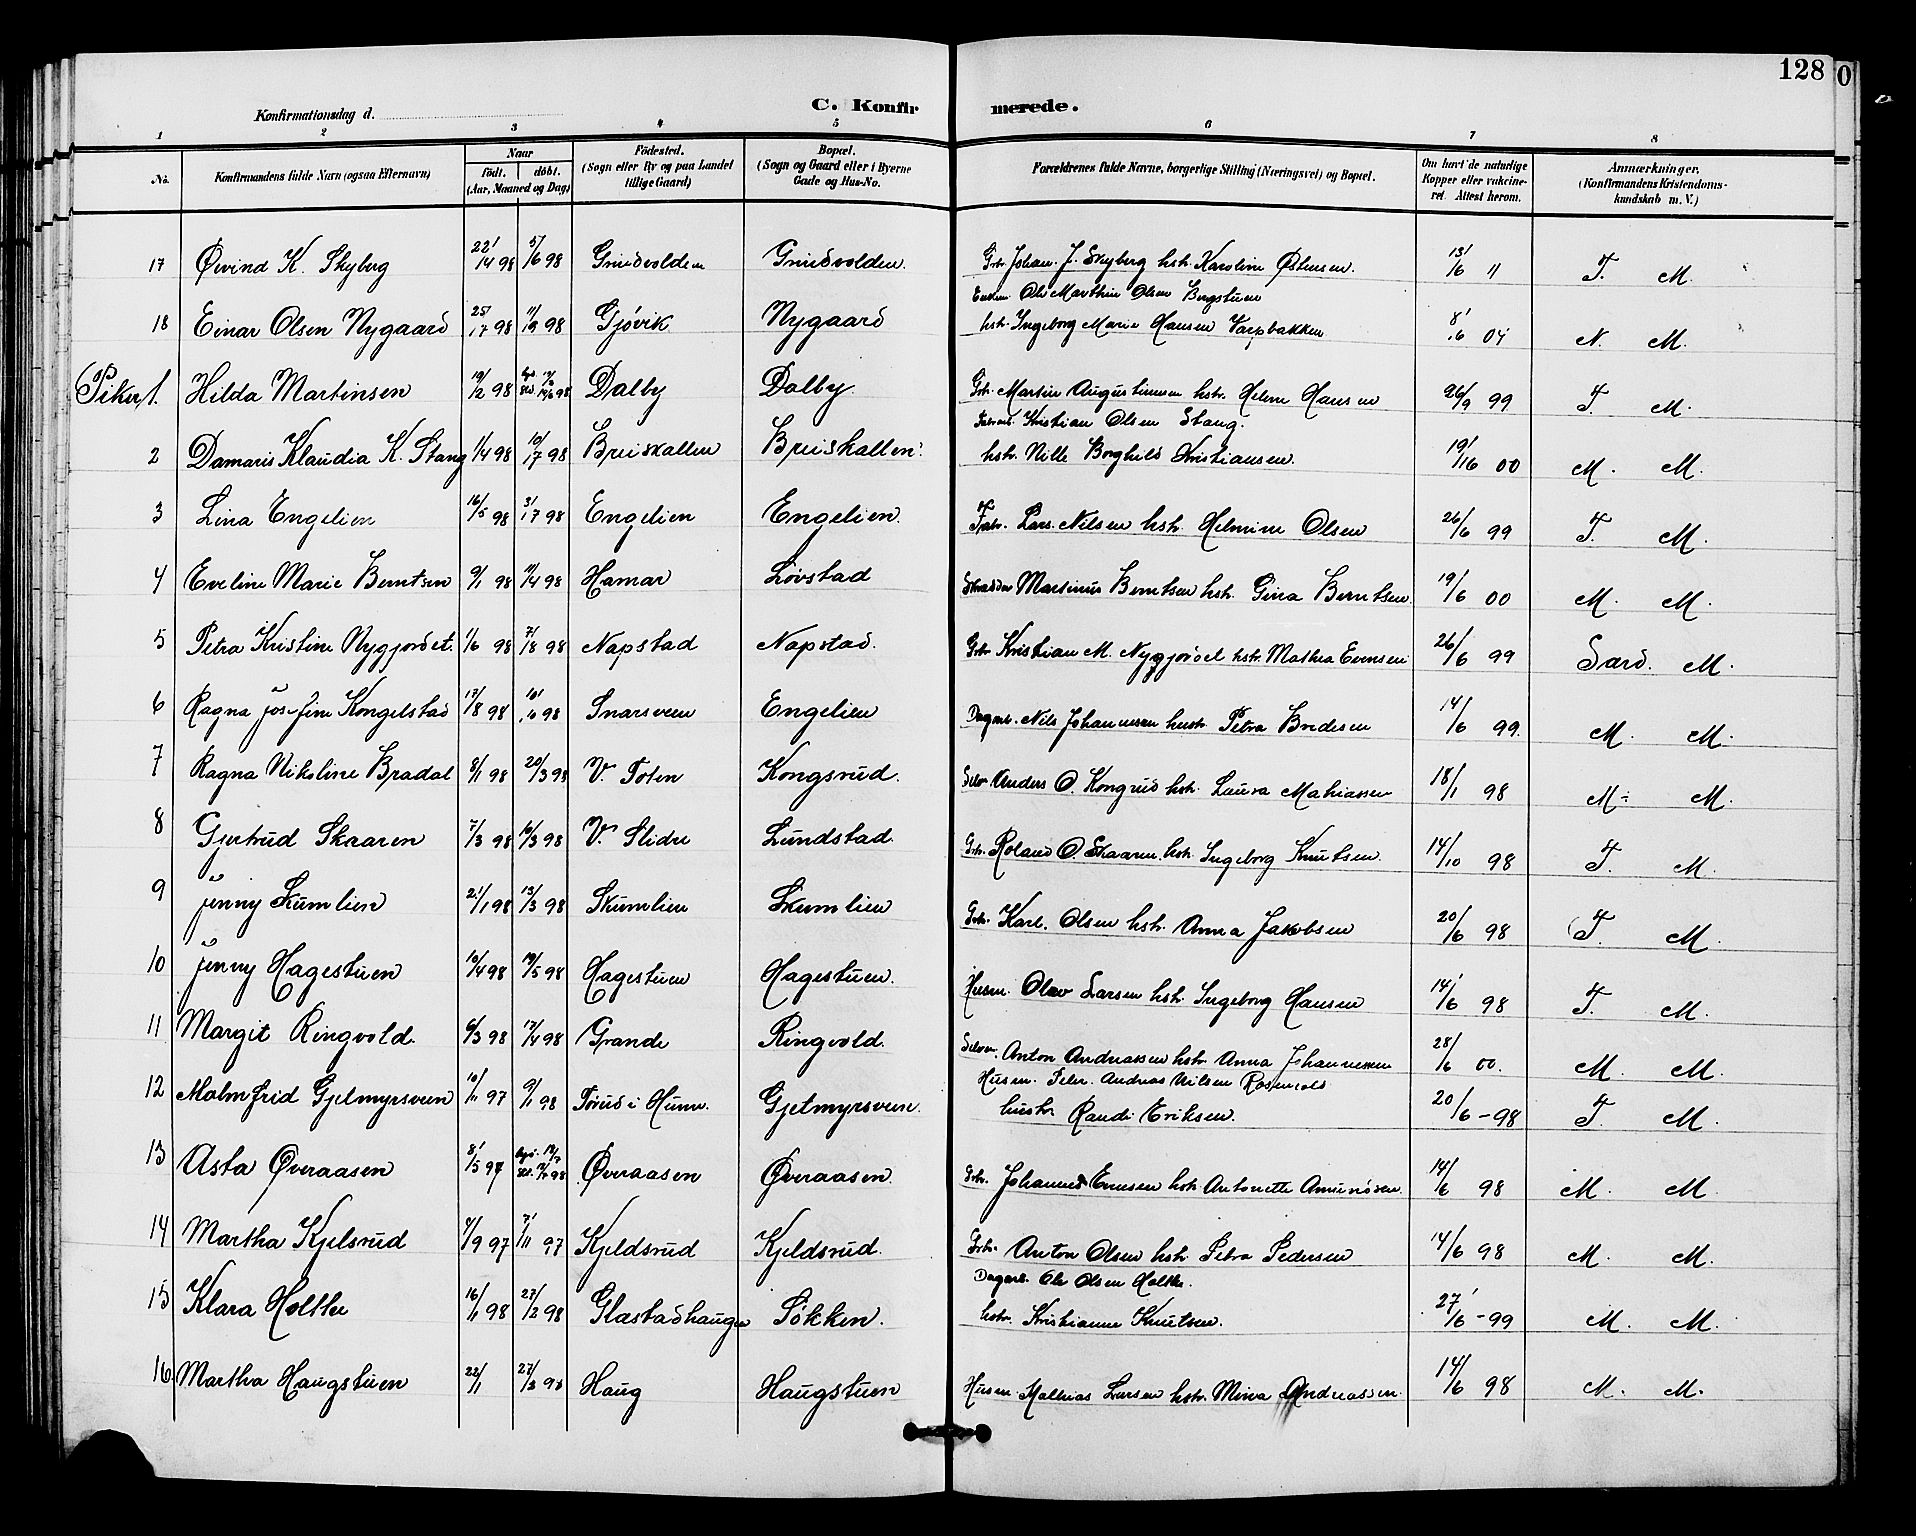 128
0
C. Konfirmerede.
Konfirmationsdag d.
1 2 3 4 5 6 7 8
No. Konfirmandens fulde Navn (ogsaa Efternavn) Naar födt. döbt. (Aar, Maaned og Dag) Födested. (Sogn eller By og paa Landet tillige Gaard) Bopæl. (Sogn og Gaard eller i Byerne Gade og Hus-No. Forældrenes fulde Navne, borgerlige Stilling (Næringsvei) og Bopæl. Om havt de naturlige Kopper eller vakcineret. Attest herom. Anmærkninger. (Konfirmandens Kristendomskundskab m. V.)
17 Øvind K. Skyberg 22/4 98 5/6 98 Gruisvolden Gruisvolden. Grbr. Johan. J. Skyberg hstr. Karoline Østensen. 13/6 11 T. M.
Ole Marthin Olsen Bergstuen
18 Einar Olsen Nygaard 25/7 98 98 Gjøvik Nygaard hstr. Ingeborg Marie Hansen Varpbakken 8/6 04 N. M.
Piker 1. Hilda Martinsen 19/2 98 98 Dalby Dalby. Grbr. Martin Augustinusen hstr. Helene Hansen 26/9 99 T. M.
Kristian Olsen Stang.
2 Damaris Klaudia K. Stang 1/4 98 10/7 98 Breiskallen Breiskallen. hstr. Nille Borghild Kristiansen. 19/16 00 M. M.
3 Lina Engelien 16/5 98 3/7 98 Engelien Engelien. Fabr. Lars Nilsen hstr. Helmine Olsen 26/6 99 T. M.
4 Eveline Marie Berntsen 9/1 98 11/4 98 Hamar Lövstad Skrædder Martinus Berntsen hstr. Gina Berntsen. 19/6 00 M. M.
5 Petra Kristine Nygjordet. 1/6 98 7/8 98 Napstad Napstad. Grbr. Kristian M. Nygjordet hstr. Mathea Evensen 26/6 99 Særd. M.
6 Ragna Josefine Kongelstad 17/8 98 10/10 98 Snarsveen Engelien Dagarb. Nils Johannesen hustr. Petra Bredesen 14/6 99. M. M.
7 Ragna Nikoline Bradal 8/1 98 20/3 98 V. Toten Kongsrud. Selv. Anders O. Kongrud hstr. Laura Mathiassen 18/1 98 M. M.
8 Gjertrud Skaaren 7/3 98 16/3 98 V. Slidre Lundstad. Grbr. Roland O. Skaaren. hstr. Ingeborg Knutsen. 14/10 98 T. M.
9 Jenny Skumlien 21/1 98 13/3 98 Skumlien Skumlien Grbr. Karl. Olsen hstr. Anna Jakobsen 20/6 98 T. M.
10 Jenny Hagestuen 10/4 98 19/5 98 Hagestuen Hagestuen. Husm. Olav Larsen hstr. Ingeborg Hansen 14/6 98 T. M.
11 Margit Ringvold. 6/3 98 17/4 98 Grande Ringvold. Selv. Anton Andreassen hstr. Anna Johannessen 28/6 00. M. M.
Husm. Peter Andreas Nilsen Rosenvold
12 Malmfrid Gjetmyrsveen 10/11 97 9/1 98 Torud i Hunn. Gjetmyrsveen. hustr. Randi Eriksen. 20/6-98 T. M.
13 Asta Øveraasen 8/5 97 98 Øveraasen Øveraasen. Grbr. Johannes Evensen hstr. Antonette Amundsen. 14/6 98 M. M.
14 Martha Kjelsrud 4/9 97 7/11 97 Kjeldsrud Kjeldsrud. Grbr. Anton Olsen hstr. Petra Pedersen 14/6 98 M. M.
Dagarb. Ole Olsen Holthe.
15 Klara Holthe 16/11 98 27/2 98 Glæstadhaugen Sökken. hstr. Kristianne Knutsen. 27/6-99 M. M.
16 Martha Haugstuen 22/11 27/3 98 Haug Haugstuen Husm. Mathias Larsen hstr. Mina Andreassen. 14/6 98 M. M.